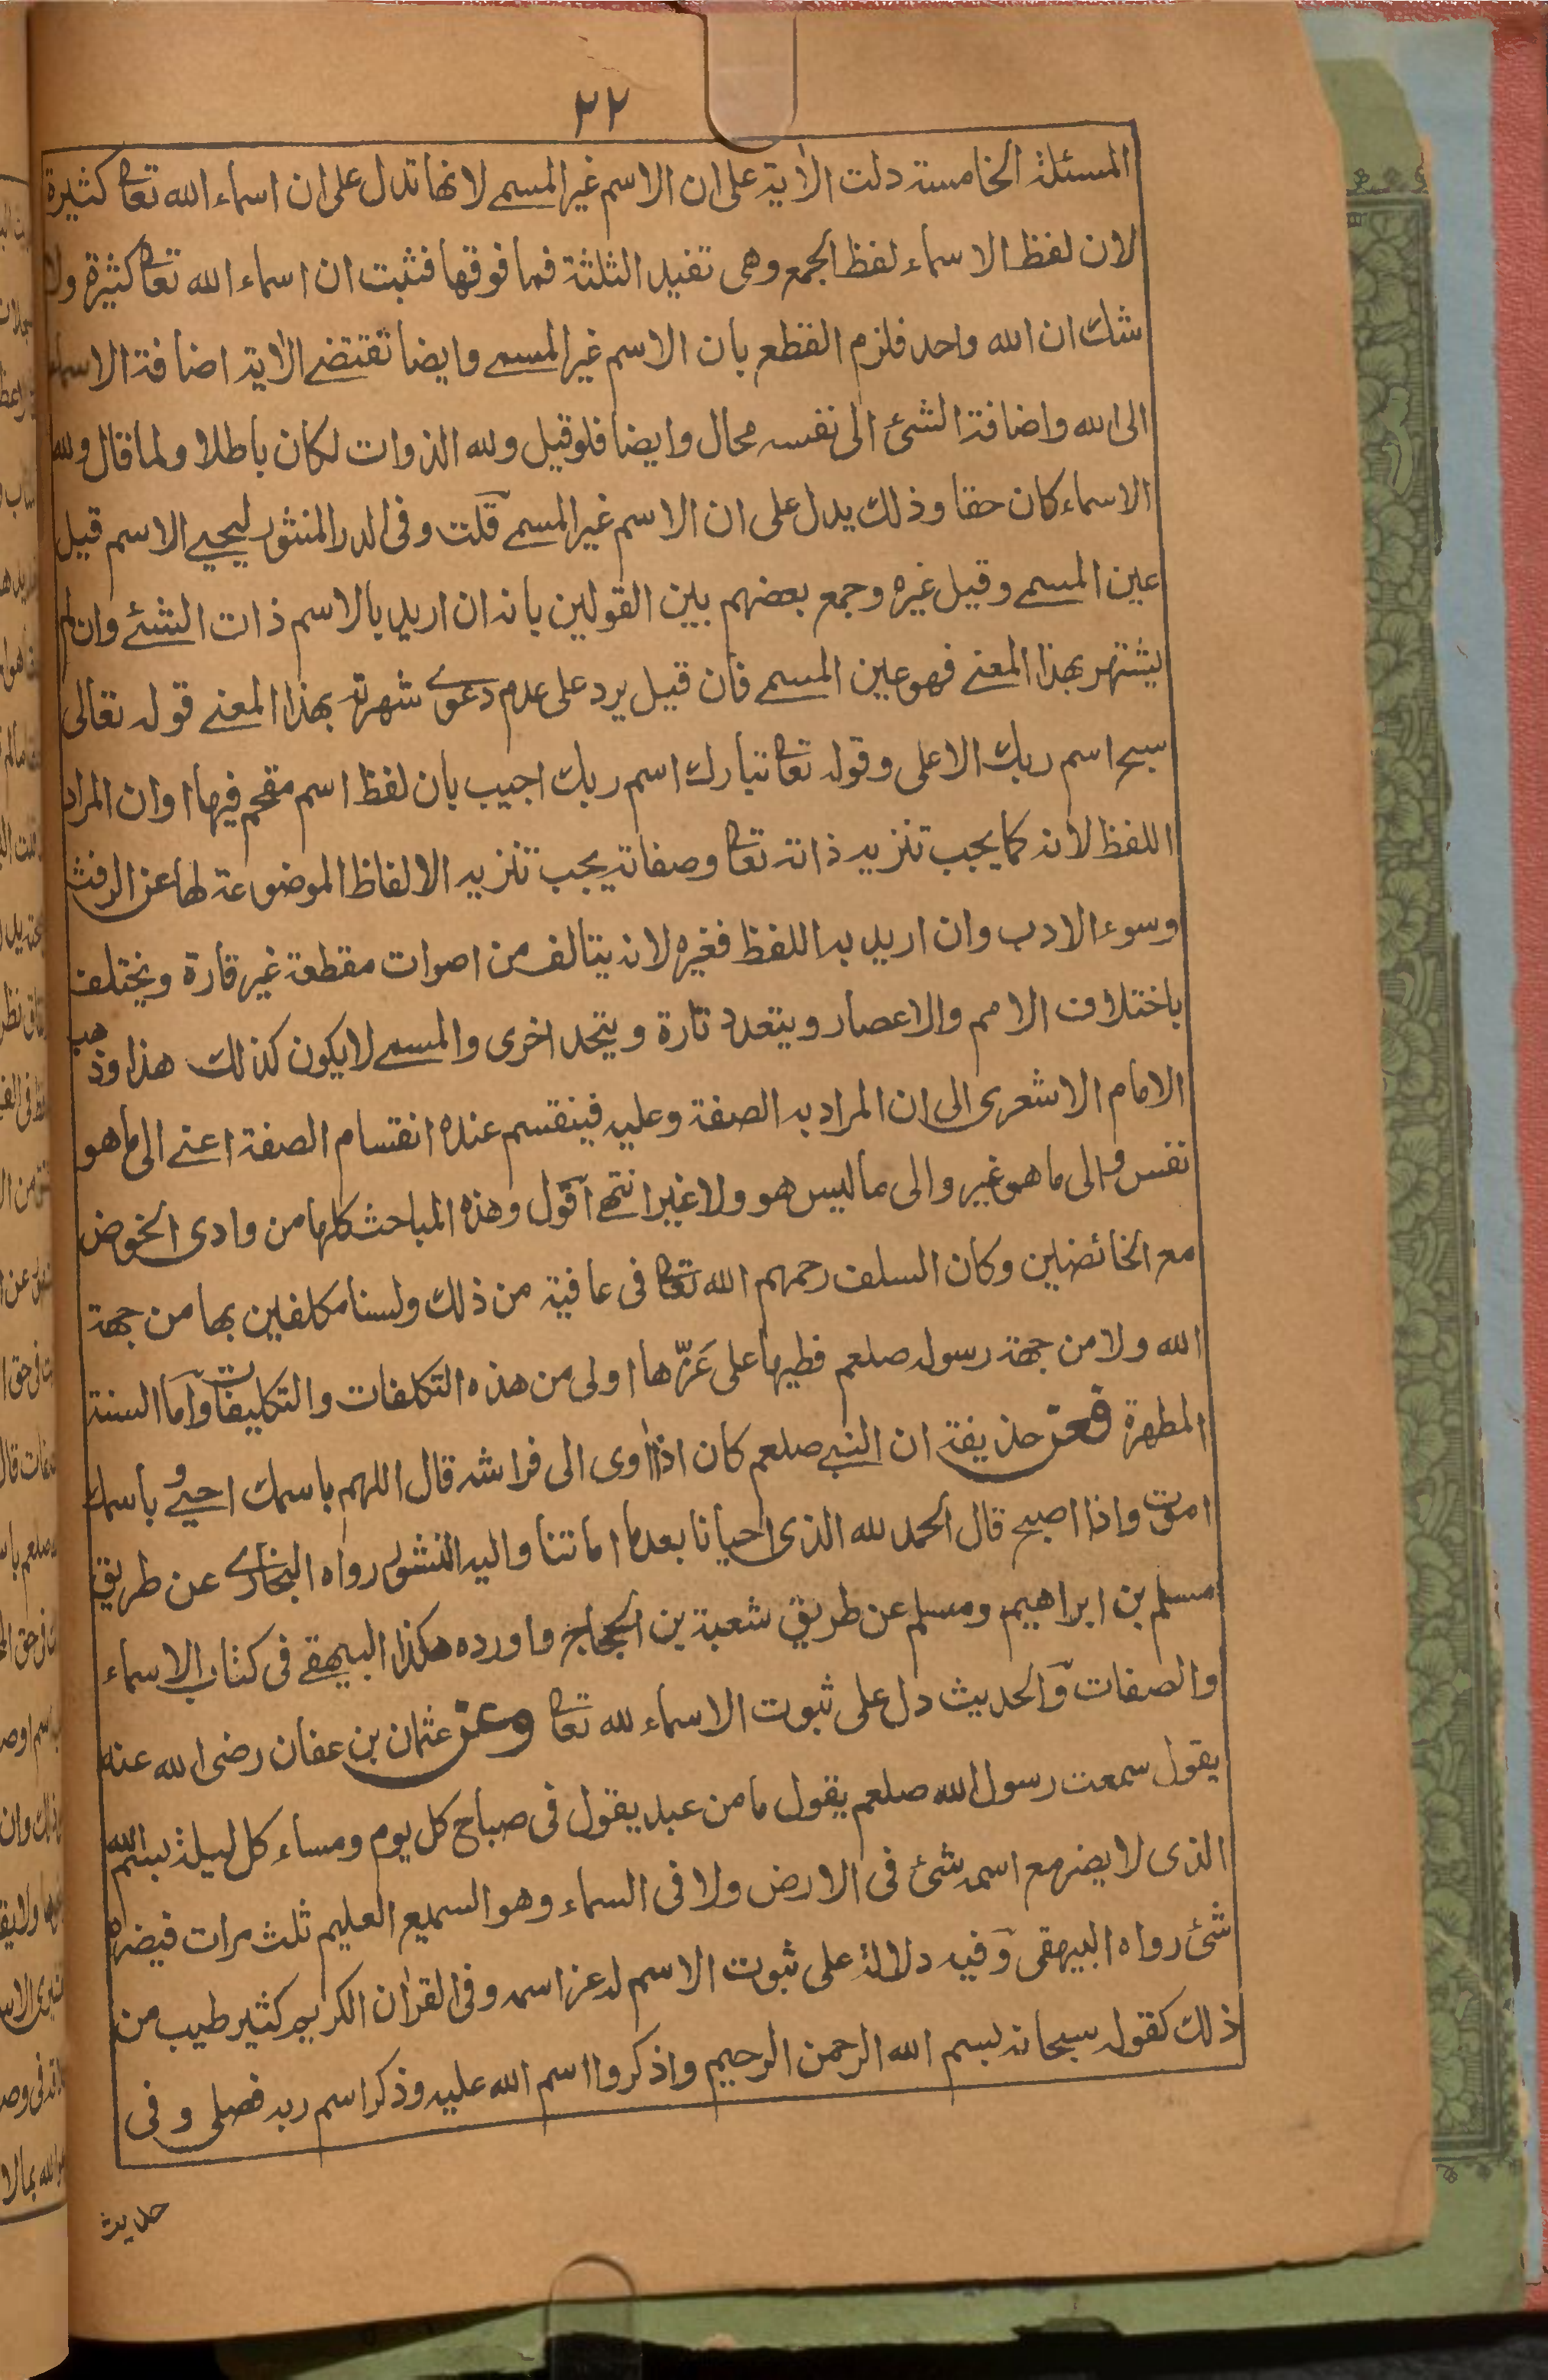 ٢٢
المسئلة الخامسة دلت الآية على ان الاسم غير المسمے لانها تدل على ان اسماء الله تعا كثيرة
لان لفظ الاسماء لفظ الجمع وهى تفيد الثلثة فما فوقها فثبت ان اسماء الله تعا كثيرة ولا
شك ان الله واحد فلزم القطع بان الاسم غير المسمے وايضا تقتضے الآية اضافة الاسماء
الى الله واضافة الشئ الى نفسه محال وايضا فلو قيل ولله الذوات لكان باطلا ولما قال ولله
الاسماء كان حقا وذلك يدل على ان الاسم غير المسمے قلت وفى الدر المنثور ليحيے الاسم قيل
عين المسمے وقيل غيره وجمع بعضهم بين القولين بانه ان اريد بالاسم ذات الشئے وان لم
يشتهر بهذا المعنے فهو عين المسمے فان قيل يرد على عدم دعوے شهرته بهذا المعنے قوله تعالى
سبح اسم ربك الاعلى وقوله تعا تبارك اسم ربك اجيب بان لفظ اسم مقحم فيها او ان المراد
اللفظ لانه كما يجب تنزيه ذاته تعا وصفاته يجب تنزيه الالفاظ الموضوعة لها عن الرفث
وسوء الادب وان اريد به اللفظ فغيره لانه يتالف من اصوات مقطعة غير قارة ويختلف
باختلاف الامم والاعصار ويتعدد تارة ويتحد اخرى والمسمے لا يكون كذلك هذا وذهب
الامام الاشعرى الى ان المراد به الصفة وعليه فينقسم عنده انقسام الصفة اعنے الى ما هو
نفس والى ما هو غير والى ما ليس هو ولا غير انتهے اقول وهذه المباحث كلها من وادى الخوض
مع الخائضين وكان السلف رحمهم الله تعا فى عافية من ذلك ولسنا مكلفين بها من جهة
الله ولا من جهة رسوله صلعم فطيها على غَرّها اولى من هذه التكلفات والتكليفات واما السنة
المطهرة فعن حذيفة ان النبے صلعم كان اذا اوى الى فراشه قال اللهم باسمك احيے و باسمك
اموت واذا اصبح قال الحمد لله الذى احيانا بعد ما اماتنا واليه النشور رواه البخارے عن طريق
مسلم بن ابراهيم ومسلم عن طريق شعبة بن الحجاج واورده هكذا البيهقے فى كتاب الاسماء
والصفات والحديث دل على ثبوت الاسماء لله تعا وعن عثمان بن عفان رضى الله عنه
يقول سمعت رسول الله صلعم يقول ما من عبد يقول فى صباح كل يوم ومساء كل ليلة بسم الله
الذى لا يضر مع اسمه شئ فى الارض ولا فى السماء وهو السميع العليم ثلث مرات فيضره
شئ رواه البيهقى وفيه دلالة على ثبوت الاسم له عز اسمه وفى القرآن الكريم كثير طيب من
ذلك كقوله سبحانه بسم الله الرحمن الرحيم واذكروا اسم الله عليه وذكر اسم ربه فصلى وفى
حديث